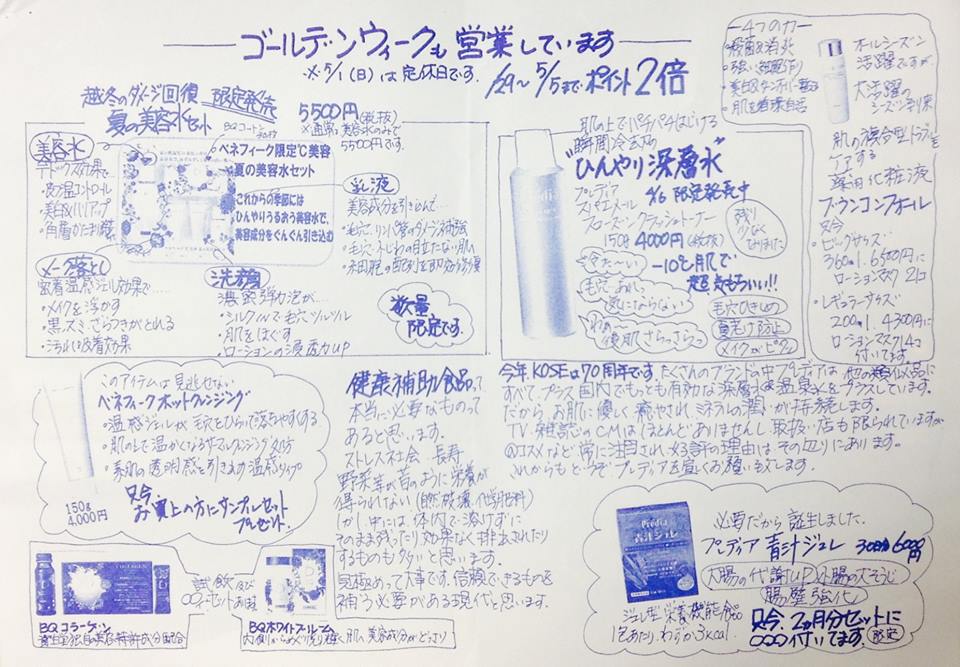 ゴールデンウィークも営業しています
※5/1(日)は定休日です。
4/29〜5/5まで ポイント2倍
越冬のダメージ回復 限定発売
夏の美容水セット
5500円(税抜)
※通常、美容水のみで
5500円です。
美容水
・美白&ハリアップ
ベネフィーク限定℃美容
夏の美容水セット
これからの季節には
ひんやりうるおう美容水で、
美容成分をぐんぐん引き込む
乳液
美容成分を引き込んで…
・毛穴、小じわの目立たない肌
メーク落とし
密着温感ジェル効果で…
・メイクを浮かす
・黒ズミ、ざらつきがとれる
・汚れ吸着効果
洗顔
濃密弾力泡が…
・シルクInで毛穴ツルツル
・肌をほぐす
・ローションの浸透力UP
数量
限定です。
肌の上でパチパチはじける
瞬間冷却
"ひんやり深層水"
プレディア
4/6 限定発売中
150g 4000円(税抜)
残り
少なく
なりました
-10℃肌で
超気もちいい!!
冷た〜い
気にならない
わぁ〜
後肌さらさらっ
毛穴ひきしめ
メイクがピタッ
4つの力
・肌を循環自活
オールシーズン
活躍ですが
大活躍の
シーズン到来
肌の複合型トラブルを
ケアする
薬用化粧液
ブランコンフォール
只今
・ビッグサイズ
360ml. 6500円に
ローションマスク21コ
・レギュラーサイズ
200ml. 4300円に
ローションマスク14コ
付いてます
このアイテムは見逃せない
ベネフィークホットクレンジング
・温感ジェルが毛穴をひらいて落ちやすくする
・肌の上で温かくなる
150g
4,000円
只今
お買上の方にサンプルセット
プレゼント.
健康補助食品って
本当に必要なものって
あると思います。
ストレス社会 長寿
野菜等が昔のように栄養が
得られない(自然破壊、化学肥料)
しかし中には、体内で溶けずに
そのまま残ったり効果なく排出されたり
するものも多いと思います。
補う必要がある現代と思います。
今年、KOSEは70周年です。たくさんのブランドの中プレディアは、他の類似品に
すべてプラス国内でもっとも有効な深層水&温泉水をプラスしています。
だから、お肌に優しく癒やされ、ミネラルの潤いが持続します。
TV、雑誌のCMはほとんどありませんし、取扱い店も限られていますが
@コスメなど常に注目され好評の理由は、その辺りにあります。
これからもどうぞプレディアを宜しくお願い致します。
BQコラーゲン
BQホワイトブルーム
必要だから誕生しました.
プレディア 青汁ジュレ 30日分 6000円
Predia
青汁ジュレ
大腸の代謝up 小腸の大そうじ
腸壁強化!
ジュレ型栄養機能食品
1包あたり、わずか3kcal.
只今、2ヵ月分セットに
○○○○付いてます. 限定